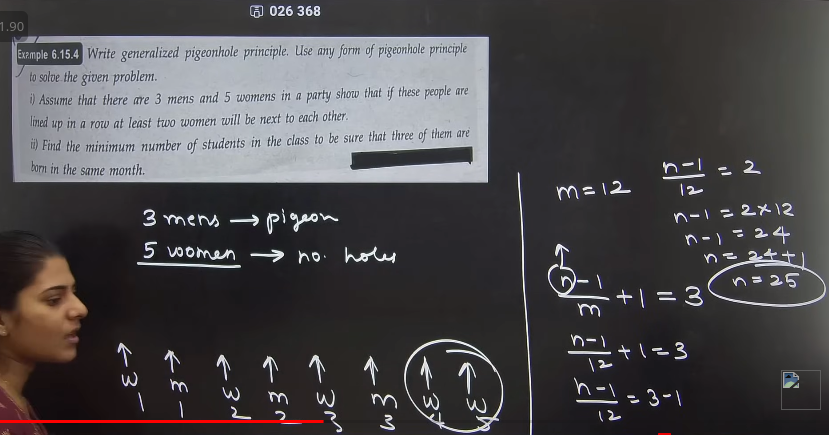 026 368
1.90
Example 6.15.4 Write generalized pigeonhole principle. Use any form of pigeonhole principle
to solve the given problem.
i) Assume that there are 3 mens and 5 womens in a party show that if these people are
lined up in a row at least two women will be next to each other.
ii) Find the minimum number of students in the class to be sure that three of them are
born in the same month.
3 mens → pigeon
5 women → no. holes
↑ ↑ ↑ ↑ ↑ ↑ ↑ ↑
w m w m w m w w
1 1 2 2 3 3 4 5
m = 12
n-1/12 = 2
n-1 = 2×12
n-1 = 24
n = 24+1
n = 25
↑
n-1/m + 1 = 3
n-1/12 + 1 = 3
n-1/12 = 3-1